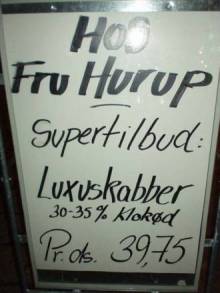 Hos
Fru Hurup
Supertilbud:
Luxuskabber
30-35% Klokød
Pr. ds. 39,75